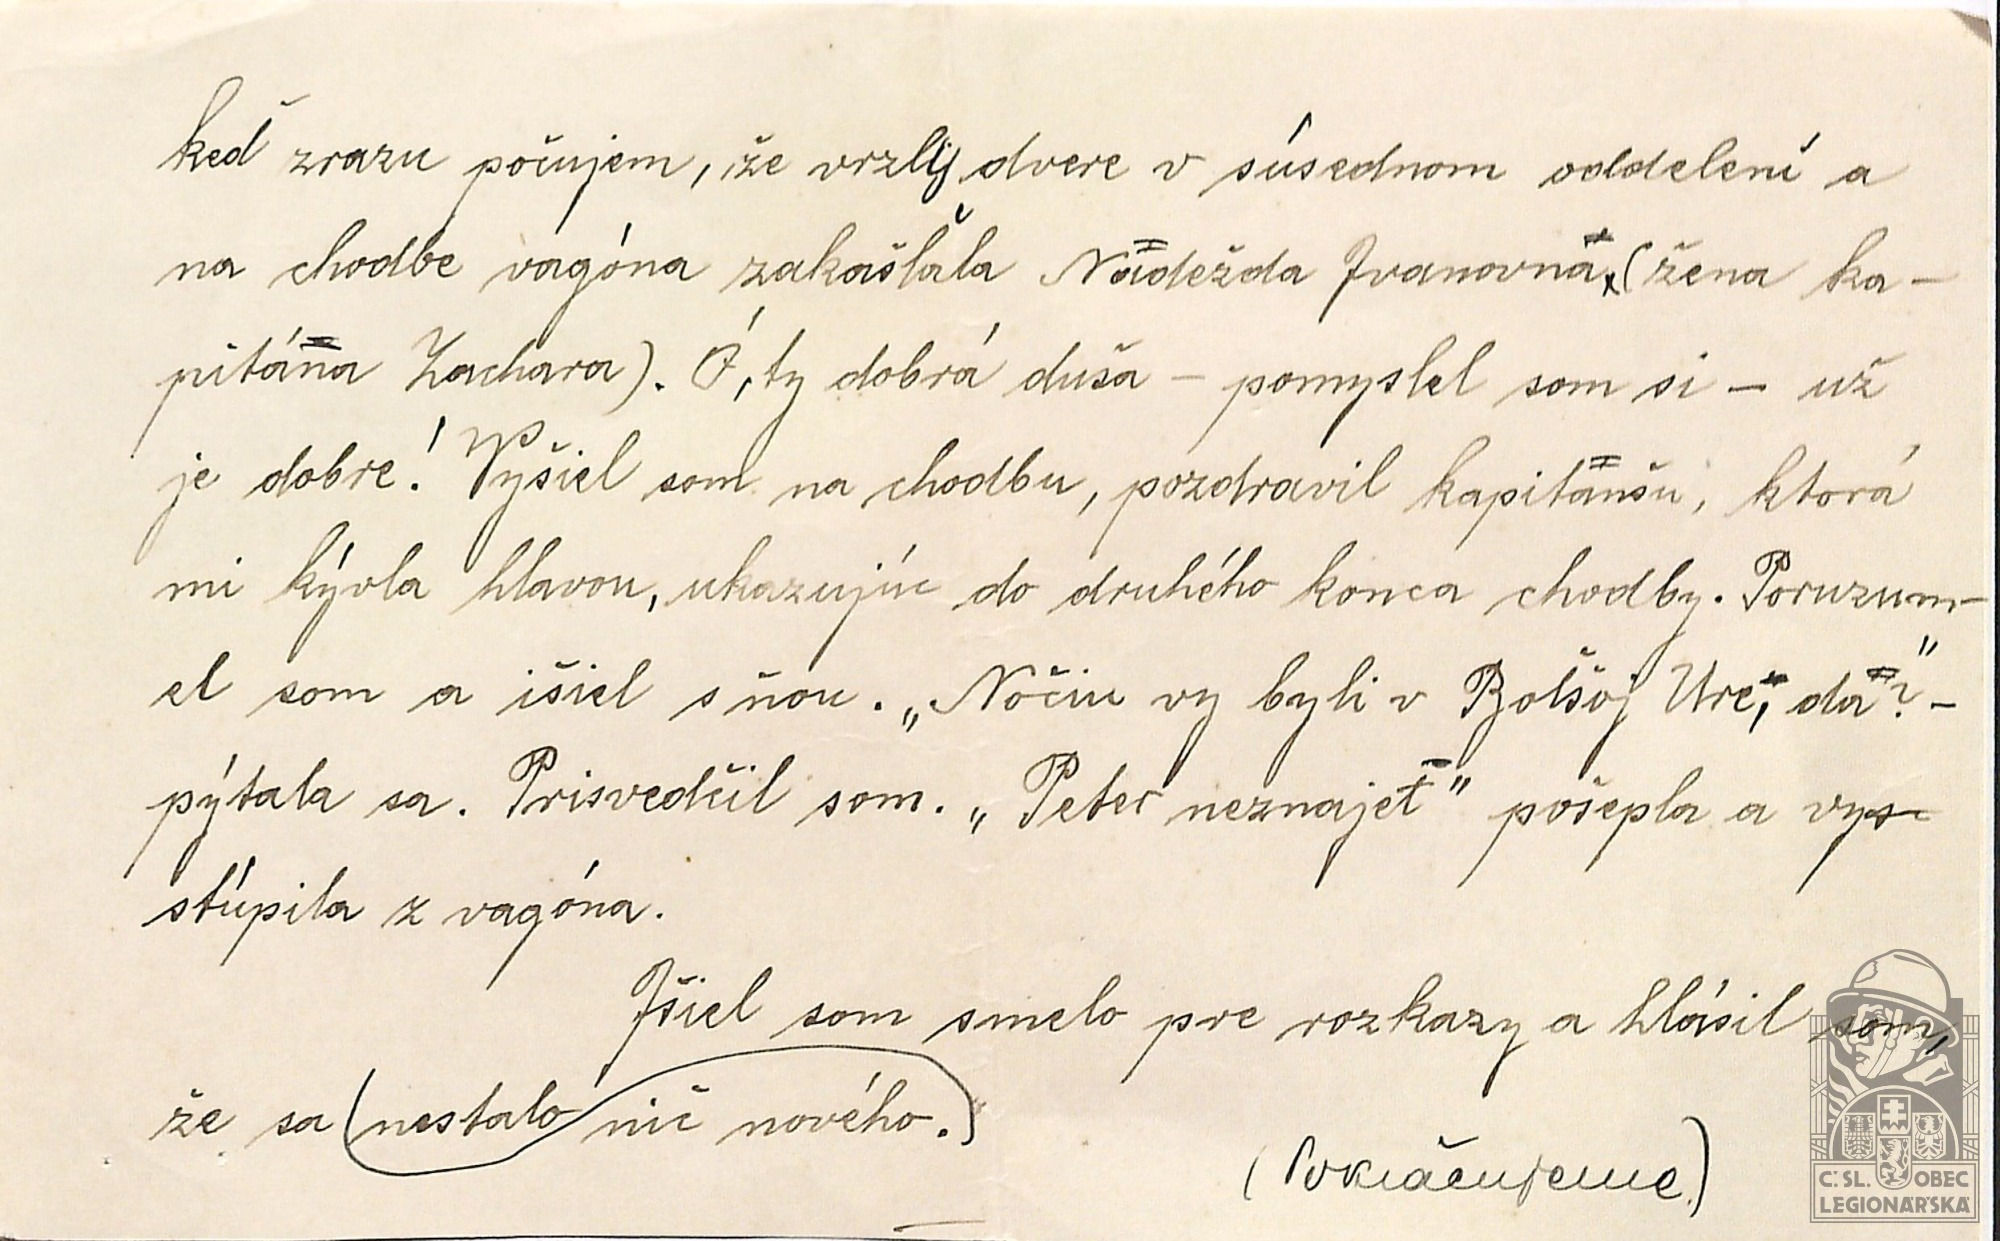 keď zrazu počujem, že vrzly dvere v súsednom oddelení a
na chodbe vagóna zakašľala Nadežda Ivanovna (žena ka-
pitána Zachara). Ó, ty dobrá duša – pomyslel som si – už
je dobre! Vyšiel som na chodbu, pozdravil kapitánšu, ktorá
mi kývla hlavou, ukazujúc do druhého konca chodby. Poruzum-
el som a išiel s ňou. „Nočiu vy byli v Bolšoj Ure, da?" –
pýtala sa. Prisvedčil som. „Peter neznajet" pošepla a vy-
stúpila z vagóna.
Išiel som smelo pre rozkazy a hlásil som,
že sa (nestalo nič nového.)
(Pokračujeme)
Č.SL. OBEC
LEGIONÁŘSKÁ